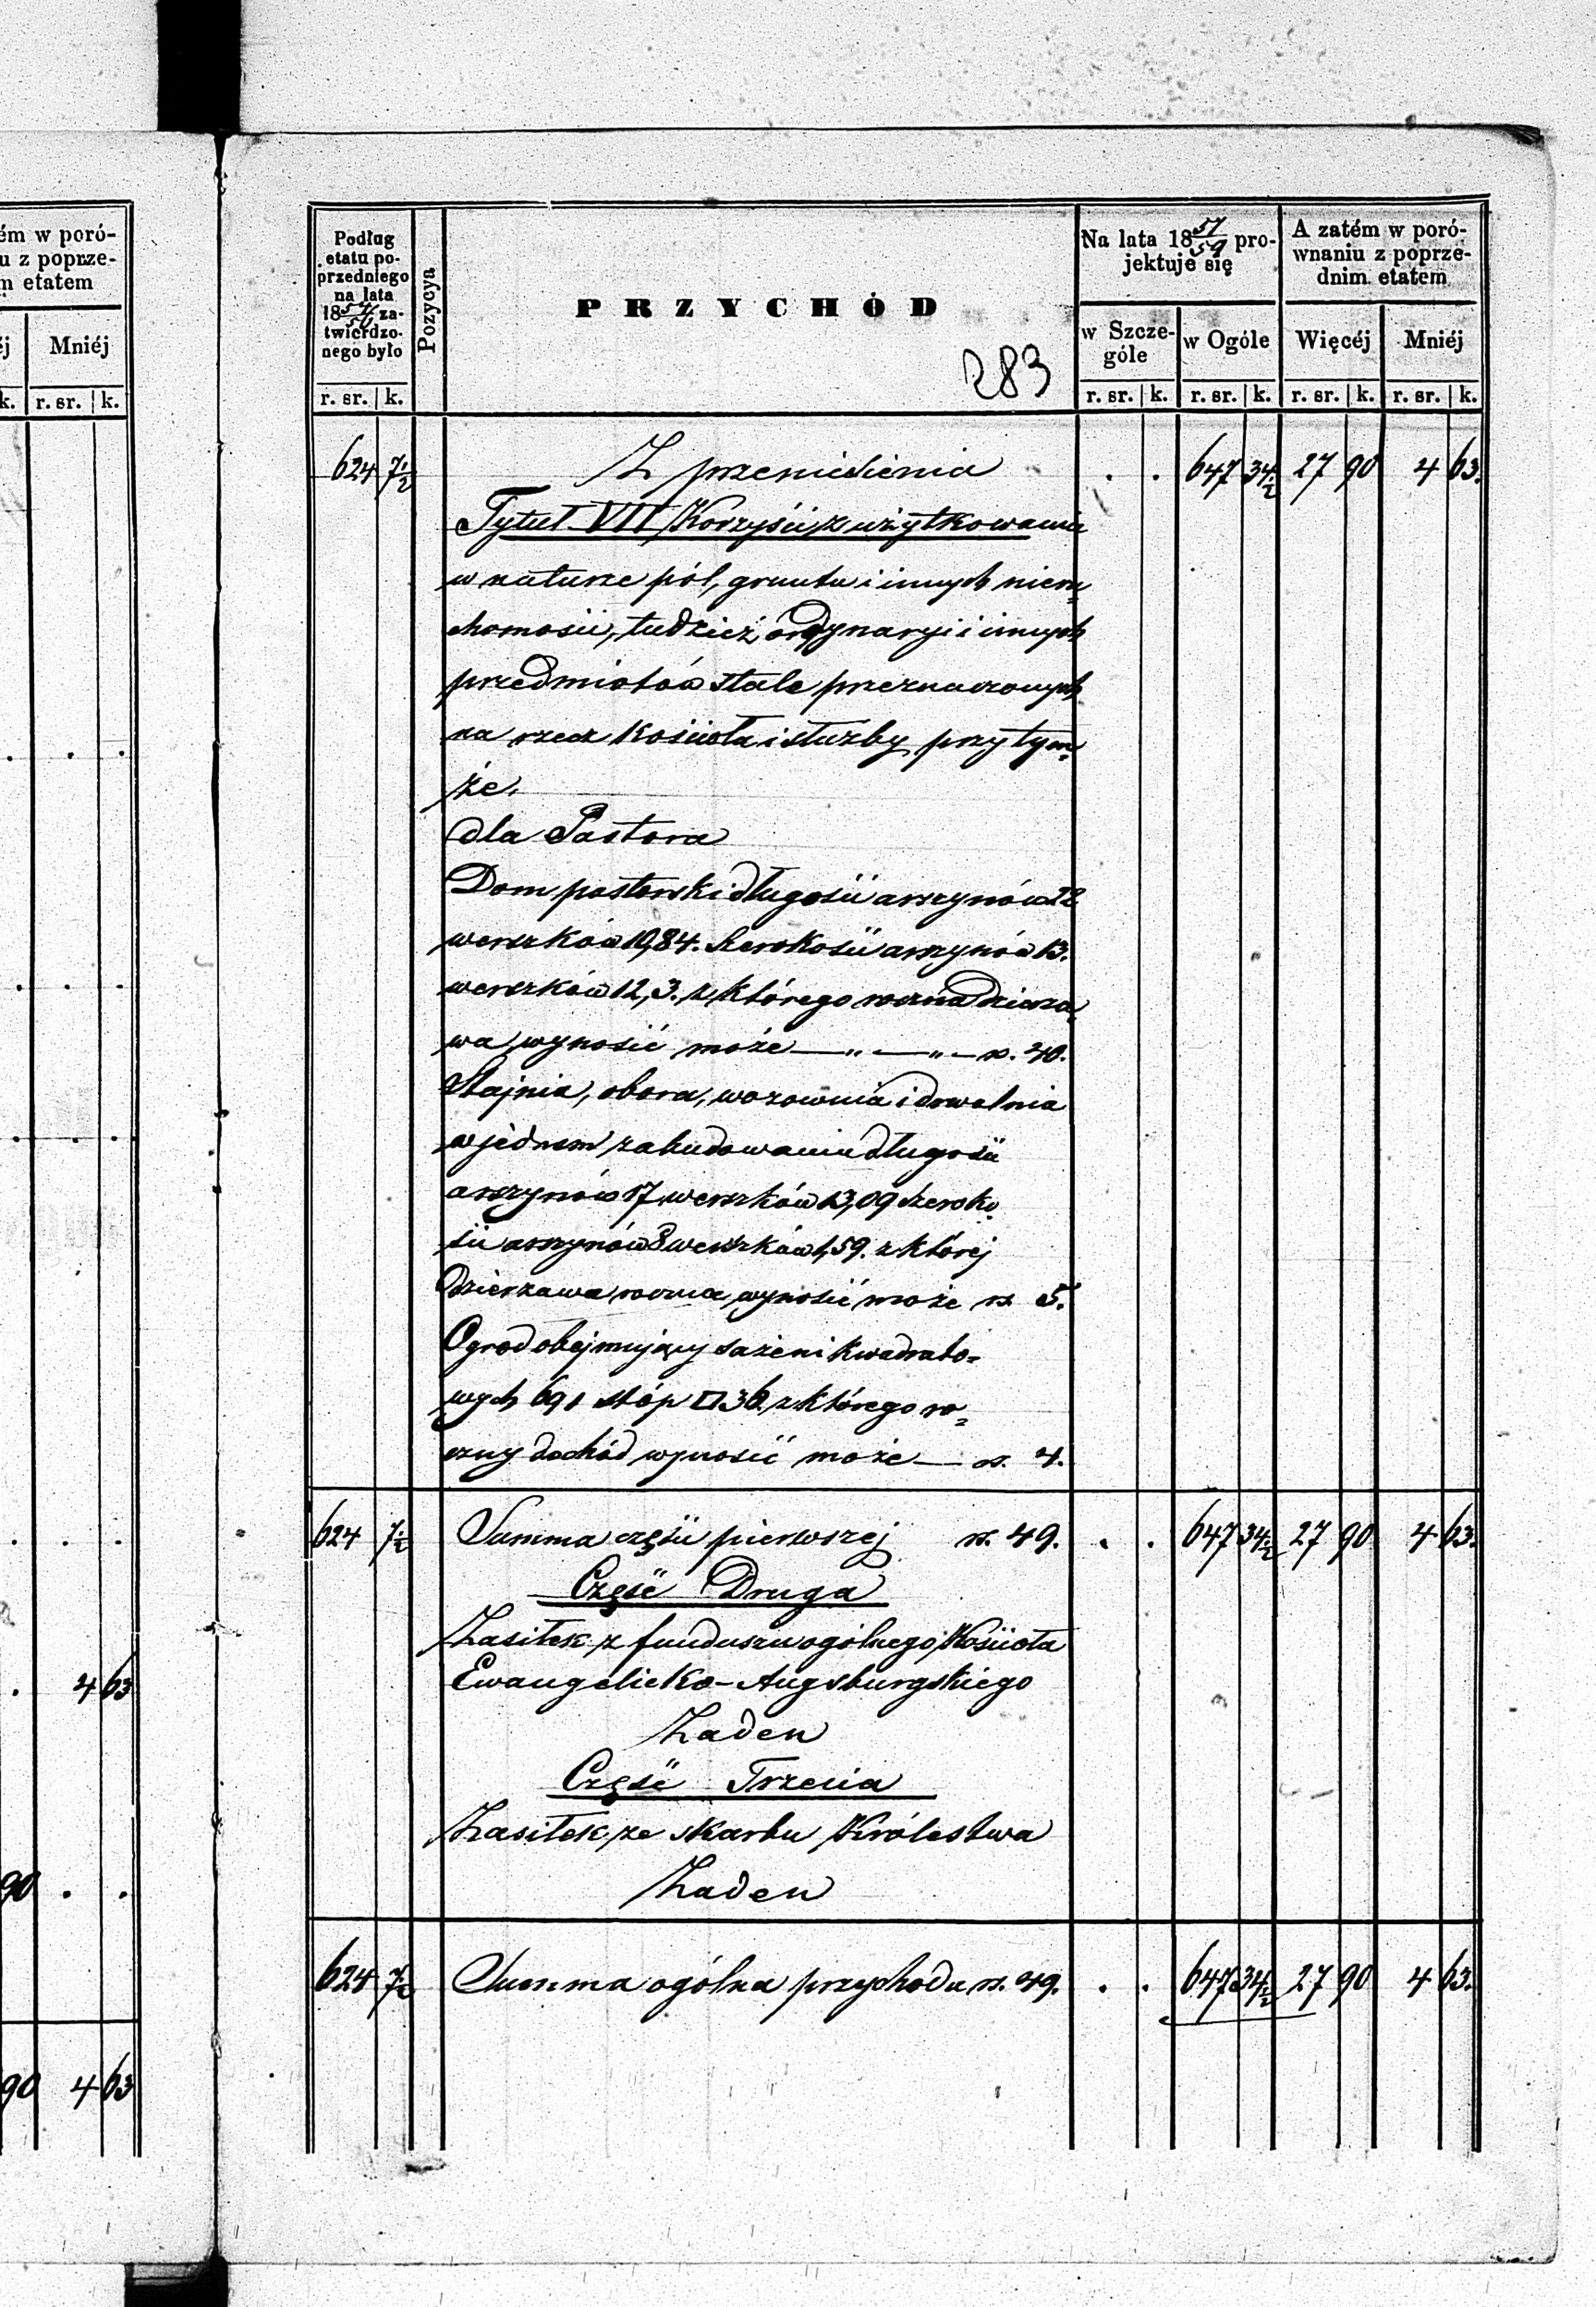 ém w poró-
u z poprze-
m etatem
éj
Mniéj
k.
r. sr.
k.
4 63
90 . .
90 4 63
Podług
etatu po-
przedniego
na lata
18 54/56 za-
twierdzo-
nego było
r. sr. k.
Pozycya
PRZYCHÓD
283
Na lata 18 57/59 pro-
jektuje się
w Szcze-
góle
w Ogóle
r. sr. k. r. sr. k.
A zatém w poró-
wnaniu z poprze-
dnim etatem
Więcéj Mniéj
r. sr. k. r. sr. k.
624 7½ Z przeniesienia . . 647 34½ 27 90 4 63.
Tytuł VII Korzyści z użytkowania
w naturze pól, gruntu i innych nieru=
chomości, tudzież ordynaryi i innych
przedmiotów stale przeznaczonych
na rzecz kościoła i służby przy tym=
że.
dla Pastora
Dom pastorski długości arszynów 22
werszków 10,84. szerokości arszynów 13.
werszków 12,3. z którego roczna dzierza=
wa wynosić może — „ — „ — rs. 40.
Stajnia, obora, wozownia i drwalnia
w jednem zabudowaniu długości
arszynów 17 werszków 13,09 szeroko=
ści arszynów 8 werszków 1,59. z której
dzierzawa roczna wynosić może rs 5.
Ogrod obejmujący sażeni kwadrato=
wych 691 stóp □ 36. z którego ro=
czny dochód wynosić może — rs. 4.
624 7½ Summa części pierwszej rs. 49. . . 647 34½ 27 90 4 63.
Część Druga
Zasiłek z funduszu ogólnego Kościoła
Ewangelicko-Augsburgskiego
Żaden
Część Trzecia
Zasiłek ze skarbu Królestwa
Żaden
624 7½ Summa ogólna przychodu rs. 49. . . 647 34½ 27 90 4 63.